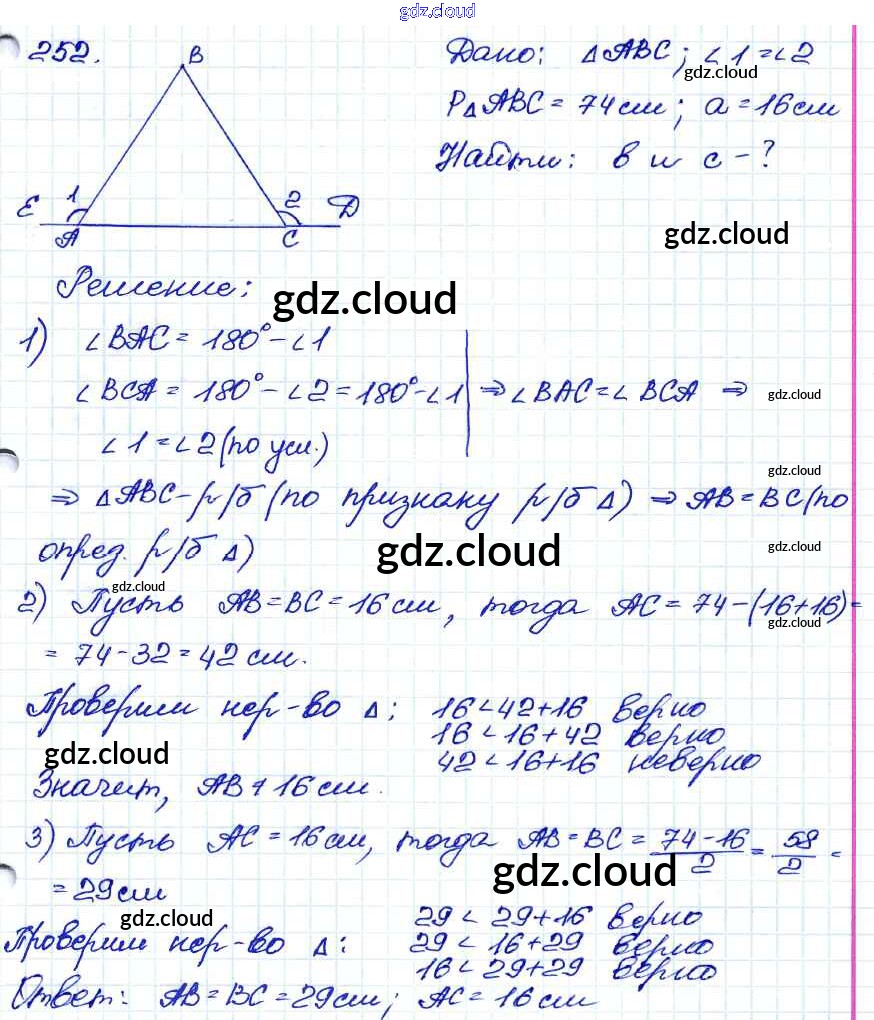 gdz.cloud
252.
B
Дано: △ABC; ∠1=∠2
gdz.cloud
P△ABC = 74см; a=16см
Найти: в и с - ?
E 1 2 D
A C
gdz.cloud
Решение:
gdz.cloud
1) ∠BAC = 180° - ∠1
∠BCA = 180° - ∠2 = 180° - ∠1 ⇒ ∠BAC = ∠BCA ⇒
gdz.cloud
∠1 = ∠2 (по усл.)
gdz.cloud
⇒ △ABC - р/б (по признаку р/б △) ⇒ AB = BC (по
опред. р/б △)
gdz.cloud
gdz.cloud
gdz.cloud
2) Пусть AB=BC=16см, тогда AC = 74-(16+16)=
gdz.cloud
= 74-32=42см.
Проверим нер-во △: 16<42+16 верно
16<16+42 верно
gdz.cloud
42<16+16 неверно
Значит, AB≠16см.
3) Пусть AC=16см, тогда AB=BC= 74-16/2 = 58/2 =
gdz.cloud
= 29см
gdz.cloud
29<29+16 верно
Проверим нер-во △: 29<16+29 верно
16<29+29 верно
Ответ: AB=BC=29см; AC=16см